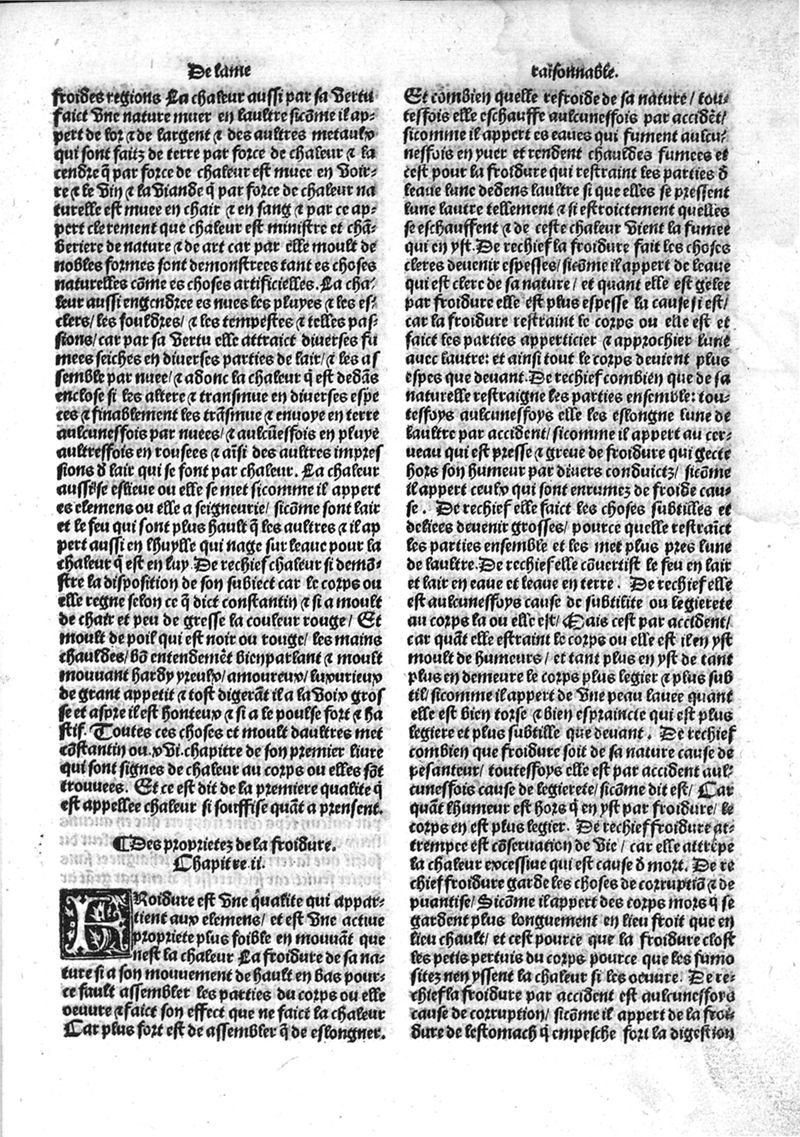 De lame
froides regions La chaleur aussi par sa vertu
faict vne nature muer en laultre sicõme il ap-
pert de lor ⁊ de largent ⁊ des aultres metaulx
qui sont faitz de terre par force de chaleur ⁊ la
cendre q̃ par force de chaleur est muee en voir-
re ⁊ le vin ⁊ la viande q̃ par force de chaleur na
turelle est muee en chair ⁊ en sang ⁊ par ce ap-
pert clerement que chaleur est ministre et chã-
beriere de nature ⁊ de art car par elle moult de
nobles formes sont demonstrees tant es choses
naturelles cõme es choses artificielles. La cha-
leur aussi engendree es nues les pluyes ⁊ les es-
clers/ les fouldres/ ⁊ les tempestes ⁊ telles pas-
sions/ car par sa vertu elle attraict diverses fu
mees seiches en diverses parties de lair/ ⁊ les as
semble par nuee/ ⁊ adonc la chaleur q̃ est dedãs
enclose si les altere ⁊ transmue en diverses espe
ces ⁊ finablement les trãsmue ⁊ envoye en terre
aulcunesfois par nuees/ ⁊ aulcũesfois en pluye
aultresfois en rousees ⁊ aĩsi des aultres impres
sions d̃ lair qui se font par chaleur. La chaleur
aussi se eslieve ou elle se met sicomme il appert
es elemens ou elle a seigneurie/ sicõme sont lair
et le feu qui sont plus hault q̃ les aultres ⁊ il ap
pert aussi en lhuylle qui nage sur leauc pour la
chaleur q̃ est en luy. De rechief chaleur si demõ-
stre la disposition de son subiect car le corps ou
elle regne selon ce q̃ dict constantin ⁊ si a moult
de chair et peu de gresse la couleur rouge/ Et
moult de poil qui est noir ou rouge/ les mains
chauldes/ bõ entendemẽt bien parlant ⁊ moult
mouuant hardy yreulx/ amoureux/ luxurieux
de grant appetit ⁊ tost digerãt il a la voix gros
se et aspre il est honteux ⁊ si a le poulse fort ⁊ ha
stif. Toutes ces choses et moult daultres met
cõstantin ou.xvi.chapitre de son premier livre
qui sont signes de chaleur au corps ou elles sõt
trouuees. Et ce est dit de la premiere qualite q̃
est appellee chaleur si souffise quãt a prensent.
¶Des proprietez de la froidure.
Chapitre.ii.
FRoidure est vne qualite qui appar-
tient aux elemens/ et est vne actiue
propriete plus foible en mouuãt que
nest la chaleur La froidure de sa na-
ture si a son mouuement de hault en bas pour-
ce fault assembler les parties du corps ou elle
oeuure ⁊ faict son effect que ne faict la chaleur
Car plus fort est de assembler q̃ de eslongner.
raisonnable.
Et cõmbien quelle refroide de sa nature/ tou-
tesfois elle eschauffe aulcunesfois par accidẽt/
sicomme il appert es eaues qui fument aulcu-
nesfois en yuer et rendent chauldes fumees et
cest pour la froidure qui restraint les parties d̃
leaue lune dedens laultre si que elles se pressent
lune lautre tellement ⁊ si estroictement quelles
se eschauffent ⁊ de ceste chaleur vient la fumee
qui en yst. De rechief la froidure fait les choses
cleres devenir espesses/ sicõme il appert de leaue
qui est clerc de sa nature/ et quant elle est gelee
par froidure elle est plus espesse la cause si est/
car la froidure restraint le corps ou elle est et
faict les parties apperticier ⁊ approchier lune
auec lautre: et ainsi tout le corps deuient plus
espes que deuant. De rechief combien que de sa
naturelle restraigne les parties ensemble: tou-
tesfoys aulcunesfoys elle les eslongne lune de
laultre par accident/ sicomme il appert au cer-
ueau qui est presse ⁊ greue de froidure qui gecte
hors son humeur par divers conduictz/ sicõme
il appert ceulx qui sont enrumez de froide cau-
se. De rechief elle faict les choses subtilles et
deliees devenir grosses/ pource quelle restraĩct
les parties ensemble et les met plus pres lune
de laultre. De rechief elle cõuertist le feu en lair
et lair en eaue et leaue en terre. De rechief elle
est aulcunesfoys cause de subtilite ou legierete
au corps la ou elle est/ Mais cest par accident/
car quãt elle estraint le corps ou elle est il en yst
moult de humeurs/ et tant plus en yst de tant
plus en demeure le corps plus legier ⁊ plus sub
til/ sicomme il appert de vne peau lauee quant
elle est bien torse ⁊ bien espraincte qui est plus
legiere et plus subtille que deuant. De rechief
combien que froidure soit de sa nature cause de
pesanteur/ toutesfoys elle est par accident aul-
cunesfois cause de legierete/ sicõme dit est/ Car
quãt lhumeur est hors q̃ en yst par froidure/ le
corps en est plus legier. De rechief froidure at-
trempee est cõservation de vie/ car elle attrẽpe
la chaleur excessive qui est cause d̃ mort. De re
chief froidure garde les choses de corruptiõ ⁊ de
puantise/ Sicõme il appert des corps mors q̃ se
gardent plus longuement en lieu froit que en
lieu chault/ et cest pource que la froidure clost
les petis pertuis du corps pource que les fumo
sitez nen yssent la chaleur si les oeuure. De re-
chief la froidure par accident est aulcunesfoys
cause de corruption/ sicõme il appert de la froi-
dure de lestomach q̃ empesche fort la digestion